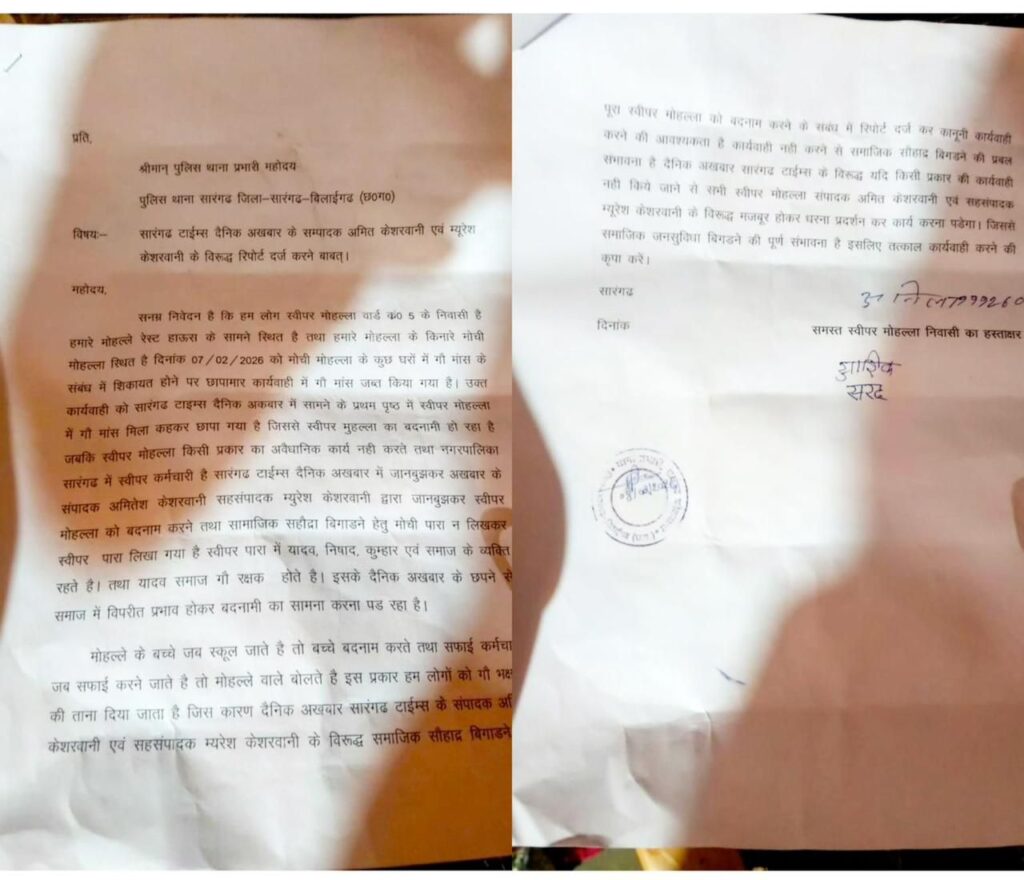 प्रति,
श्रीमान् पुलिस थाना प्रभारी महोदय
पुलिस थाना सारंगढ जिला–सारंगढ–बिलाईगढ (छ0ग0)
विषयः– सारंगढ टाईम्स दैनिक अखबार के सम्पादक अमित केशरवानी एवं म्यूरेश
केशरवानी के विरूद्ध रिपोर्ट दर्ज करने बाबत्।
महोदय,
सनम्र निवेदन है कि हम लोग स्वीपर मोहल्ला वार्ड क0 5 के निवासी है
हमारे मोहल्ले रेस्ट हाऊस के सामने स्थित है तथा हमारे मोहल्ला के किनारे मोची
मोहल्ला स्थित है दिनांक 07/02/2026 को मोची मोहल्ला के कुछ घरों में गौ मांस के
संबंध में शिकायत होने पर छापामार कार्यवाही में गौ मांस जब्त किया गया है। उक्त
कार्यवाही को सारंगढ टाइम्स दैनिक अकबार में सामने के प्रथम पृष्ठ में स्वीपर मोहल्ला
में गौ मांस मिला कहकर छापा गया है जिससे स्वीपर मुहल्ला का बदनामी हो रहा है
जबकि स्वीपर मोहल्ला किसी प्रकार का अवैधानिक कार्य नही करते तथा नगरपालिका
सारंगढ में स्वीपर कर्मचारी है सारंगढ टाईम्स दैनिक अखबार में जानबुझकर अखबार के
संपादक अमितेश केशरवानी सहसंपादक म्युरेश केशरवानी द्वारा जानबुझकर स्वीपर
मोहल्ला को बदनाम करने तथा सामाजिक सहौद्रा बिगाडने हेतु मोची पारा न लिखकर
स्वीपर पारा लिखा गया है स्वीपर पारा में यादव, निषाद, कुम्हार एवं समाज के व्यक्ति
रहते है। तथा यादव समाज गौ रक्षक होते है। इसके दैनिक अखबार के छपने से
समाज में विपरीत प्रभाव होकर बदनामी का सामना करना पड रहा है।
मोहल्ले के बच्चे जब स्कूल जाते है तो बच्चे बदनाम करते तथा सफाई कर्मचा
जब सफाई करने जाते है तो मोहल्ले वाले बोलते है इस प्रकार हम लोगों को गौ भक्ष
की ताना दिया जाता है जिस कारण दैनिक अखबार सारंगढ टाईम्स के संपादक अ
केशरवानी एवं सहसंपादक म्यरेश केशरवानी के विरूद्ध समाजिक सौहाद्र बिगाडने
पूरा स्वीपर मोहल्ला को बदनाम करने के संबंध में रिपोर्ट दर्ज कर कानूनी कार्यवाही
करने की आवश्यकता है कार्यवाही नही करने से समाजिक सौहाद्र बिगडने की प्रबल
संभावना है दैनिक अखबार सारंगढ टाईम्स के विरूद्ध यदि किसी प्रकार की कार्यवाही
नही किये जाने से सभी स्वीपर मोहल्ला संपादक अमित केशरवानी एवं सहसंपादक
म्यूरेश केशरवानी के विरूद्ध मजबूर होकर धरना प्रदर्शन कर कार्य करना पडेगा। जिससे
समाजिक जनसुविधा बिगडने की पूर्ण संभावना है इसलिए तत्काल कार्यवाही करने की
कृपा करे।
सारंगढ
दिनांक
समस्त स्वीपर मोहल्ला निवासी का हस्ताक्षर